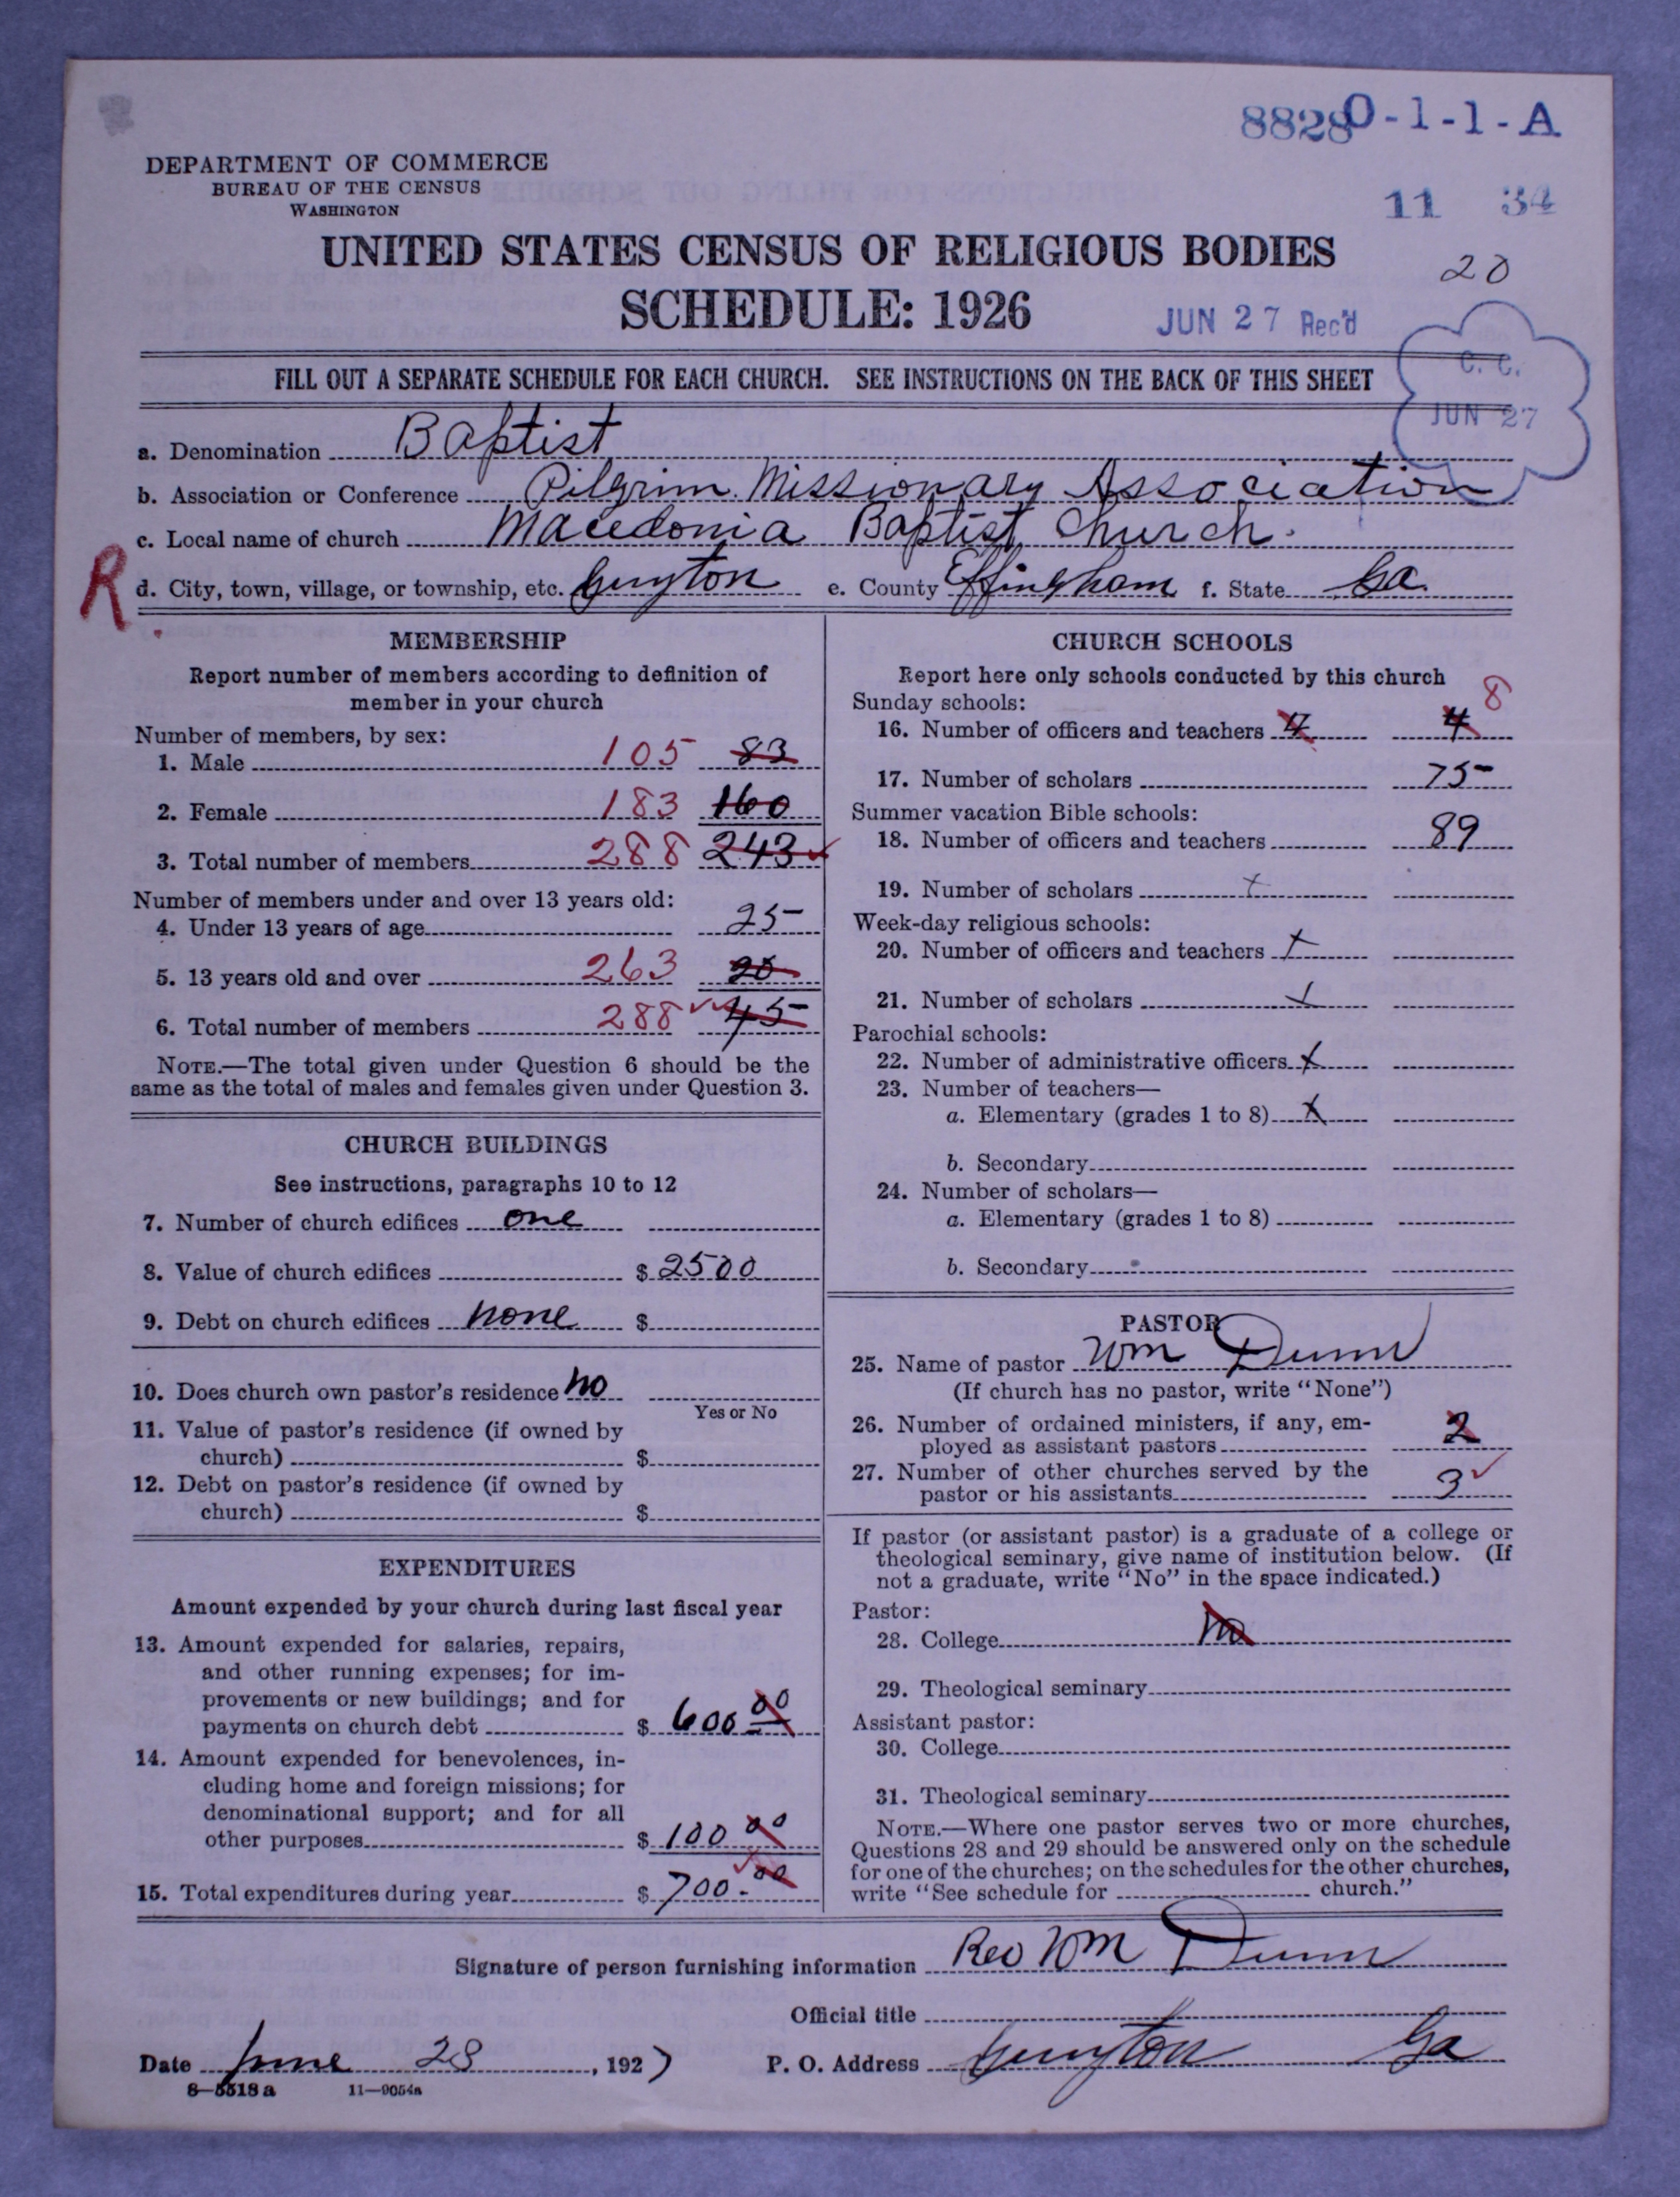 88280-1-1-A
DEPARTMENT OF COMMERCE
BUREAU OF THE CENSUS
WASHINGTON
11 34
UNITED STATES CENSUS OF RELIGIOUS BODIES
20
SCHEDULE: 1926
JUN 27 Rec'd
FILL OUT A SEPARATE SCHEDULE FOR EACH CHURCH. SEE INSTRUCTIONS ON THE BACK OF THIS SHEET
C. C.
JUN 27
a. Denomination Baptist
b. Association or Conference Pilgrim Missionary Association
c. Local name of church Macedonia Baptist Church.
R. d. City, town, village, or township, etc. Guyton e. County Effingham f. State Ga.
MEMBERSHIP
Report number of members according to definition of
member in your church
Number of members, by sex:
1. Male 105 83
2. Female 183 160
3. Total number of members 288 243
Number of members under and over 13 years old:
4. Under 13 years of age 25
5. 13 years old and over 263 20
6. Total number of members 288 45
NOTE.—The total given under Question 6 should be the
same as the total of males and females given under Question 3.
CHURCH BUILDINGS
See instructions, paragraphs 10 to 12
7. Number of church edifices one
8. Value of church edifices $ 2500
9. Debt on church edifices none $
10. Does church own pastor's residence no
Yes or No
11. Value of pastor's residence (if owned by
church) $
12. Debt on pastor's residence (if owned by
church) $
EXPENDITURES
Amount expended by your church during last fiscal year
13. Amount expended for salaries, repairs,
and other running expenses; for im-
provements or new buildings; and for
payments on church debt $ 600 00
14. Amount expended for benevolences, in-
cluding home and foreign missions; for
denominational support; and for all
other purposes $ 100 00
15. Total expenditures during year $ 700.00
CHURCH SCHOOLS
Report here only schools conducted by this church
Sunday schools: 8
16. Number of officers and teachers 4 4
17. Number of scholars 75
Summer vacation Bible schools:
18. Number of officers and teachers 89
19. Number of scholars x
Week-day religious schools:
20. Number of officers and teachers x
21. Number of scholars x
Parochial schools:
22. Number of administrative officers x
23. Number of teachers—
a. Elementary (grades 1 to 8) x
b. Secondary
24. Number of scholars—
a. Elementary (grades 1 to 8)
b. Secondary
PASTOR
25. Name of pastor Wm Dunn
(If church has no pastor, write "None")
26. Number of ordained ministers, if any, em-
ployed as assistant pastors 2
27. Number of other churches served by the
pastor or his assistants 3
If pastor (or assistant pastor) is a graduate of a college or
theological seminary, give name of institution below. (If
not a graduate, write "No" in the space indicated.)
Pastor:
28. College no
29. Theological seminary
Assistant pastor:
30. College
31. Theological seminary
NOTE.—Where one pastor serves two or more churches,
Questions 28 and 29 should be answered only on the schedule
for one of the churches; on the schedules for the other churches,
write "See schedule for church."
Signature of person furnishing information Rev Wm Dunn
Official title
Date June 28, 1927 P. O. Address Guyton Ga
8—5518a 11—9054a